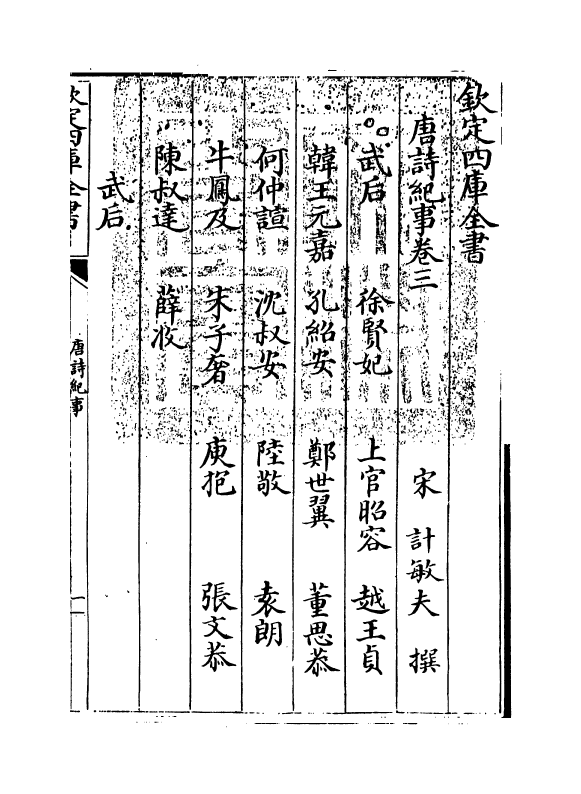 欽定四庫全書
唐詩紀事卷三
宋 計敏夫 撰
武后 徐賢妃 上官昭容 越王貞
韓王元嘉 孔紹安 鄭世翼 董思恭
何仲諠 沈叔安 陸敬 袁朗
牛鳳及 朱子奢 庾抱 張文恭
陳叔達 薛收
武后
欽定四庫全書
唐詩紀事
一